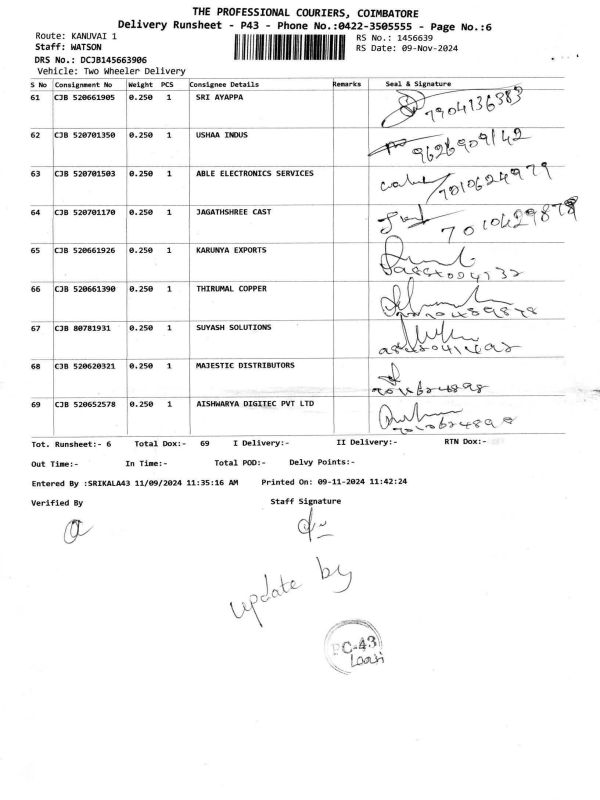 THE PROFESSIONAL COURIERS, COIMBATORE
Delivery Runsheet - P43 - Phone No.:0422-3505555 - Page No.:6
Route: KANUVAI 1
RS No.: 1456639
Staff: WATSON
RS Date: 09-Nov-2024
DRS No.: DCJB145663906
Vehicle: Two Wheeler Delivery
S No Consignment No Weight PCS Consignee Details Remarks Seal & Signature
61 CJB 520661905 0.250 1 SRI AYAPPA
7904136383
62 CJB 520701350 0.250 1 USHAA INDUS
9626909142
63 CJB 520701503 0.250 1 ABLE ELECTRONICS SERVICES
7010624979
64 CJB 520701170 0.250 1 JAGATHSHREE CAST
7010629878
65 CJB 520661926 0.250 1 KARUNYA EXPORTS
66 CJB 520661390 0.250 1 THIRUMAL COPPER
67 CJB 80781931 0.250 1 SUYASH SOLUTIONS
68 CJB 520620321 0.250 1 MAJESTIC DISTRIBUTORS
69 CJB 520652578 0.250 1 AISHWARYA DIGITEC PVT LTD
Tot. Runsheet:- 6 Total Dox:- 69 I Delivery:- II Delivery:- RTN Dox:-
Out Time:- In Time:- Total POD:- Delvy Points:-
Entered By :SRIKALA43 11/09/2024 11:35:16 AM Printed On: 09-11-2024 11:42:24
Verified By Staff Signature
update by
PC-43